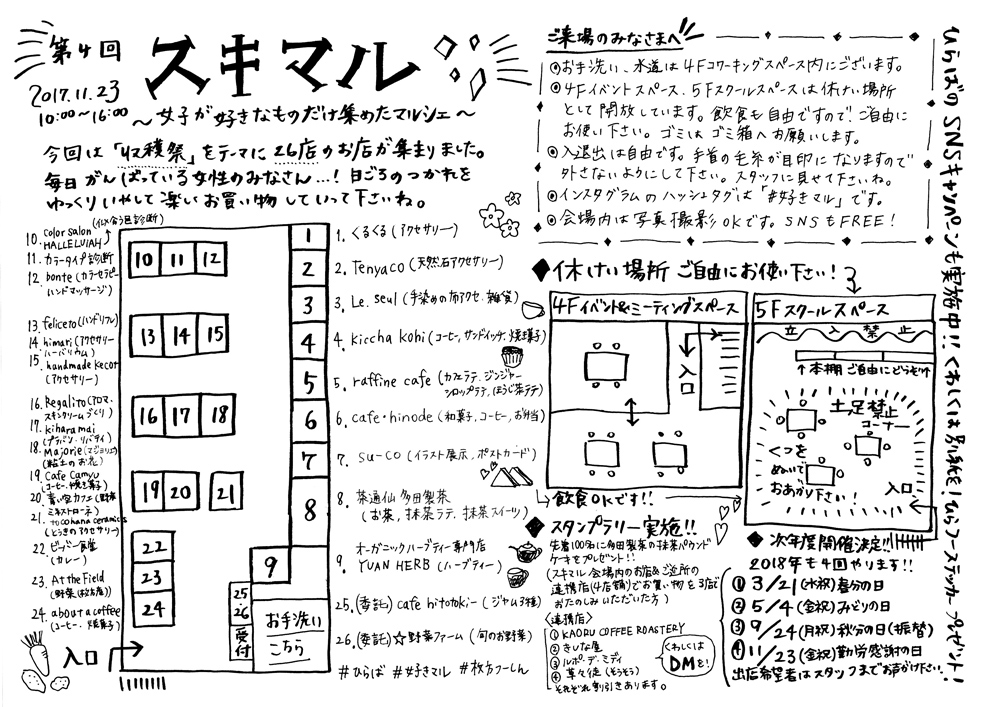 第4回
スキマル
2017.11.23
10:00〜16:00
〜女子が好きなものだけ集めたマルシェ〜
今回は「収穫祭」をテーマに26店のお店が集まりました。
毎日がんばっている女性のみなさん…！日ごろのつかれを
ゆっくりいやして楽しいお買い物していって下さいね。
ご来場のみなさまへ
◎お手洗い、水道は4Fコワーキングスペース内にございます。
◎4Fイベントスペース、5Fスクールスペースは休けい場所
として開放しています。飲食も自由ですので、ご自由に
お使い下さい。ゴミはゴミ箱へお願いします。
◎入退出は自由です。手首の毛糸が目印になりますので
外さないようにして下さい。スタッフに見せて下さいね。
◎インスタグラムのハッシュタグは「#好きマル」です。
◎会場内は写真撮影OKです。SNSもFREE!
ひらばのSNSキャンペンも実施中!!くわしくは別紙を!ひらフーステッカープレゼント!
(似合う色診断)
10. color salon
HALLELUIAH
11. カラータイプ診断
12. bonte (カラーセラピー
ハンドマッサージ)
13. feliceto (ハンドリフレ)
14. himari (アクセサリー
ハーバリウム)
15. handmade kecot
(アクセサリー)
16. Regalito (アロマ、
スキンクリームづくり)
17. kiharamai
(プラバン・リバティ)
18. Majorie (マジョリエ)
(粘土のお花)
19. Cafe Camyu
(コーヒー・焼き菓子)
20. 青い空カフェ (野菜
ミネストローネ)
21. tocohana ceramics
(とうきのアクセサリー)
22. ビッパー食堂
(カレー)
23. At the Field
(野菜(はなまる))
24. about a coffee
(コーヒー・焼菓子)
10 11 12
13 14 15
16 17 18
19 20 21
22
23
24
1
2
3
4
5
6
7
8
9
25・26
受付
お手洗い
こちら
入口
1. くるくる (アクセサリー)
2. Tenyaco (天然石アクセサリー)
3. Le. seul (手染めの布アクセ、雑貨)
4. kiccha kohi (コーヒー、サンドイッチ、焼き菓子)
5. raffine cafe (カフェラテ、ジンジャー
シロップラテ、ほうじ茶ラテ)
6. cafe・hinode (和菓子、コーヒー、お弁当)
7. su-co (イラスト展示、ポストカード)
8. 茶通仙 多田製茶
(お茶、抹茶ラテ、抹茶スイーツ)
9. オーガニックハーブティー専門店
YUAN HERB (ハーブティー)
25. (委託) cafe hitotoki- (ジャム3種)
26. (委託) ☆野菜ファーム (旬のお野菜)
#ひらば #好きマル #枚方つーしん
◆休けい場所 ご自由にお使い下さい!
4Fイベント&ミーティングスペース
入口
飲食OKです!!
5Fスクールスペース
立入禁止
↑本棚 ご自由にどうぞ
土足禁止
コーナー
くつを
ぬいで
おあがり下さい!
入口
◆スタンプラリー実施!!
先着100名に多田製茶の抹茶パウンド
ケーキをプレゼント!!
(スキマル会場内のお店&ご近所の
連携店(4店舗)でお買い物を3店で
おたのしみいただいた方)
〈連携店〉
① KAORU COFFEE ROASTERY
② きしな屋
③ ルポ・デ・ミディ
④ 草々徒 (そうそう)
それぞれ割引きあります。
くわしくは
DMを!
◆次年度開催決定!!
2018年も4回やります!!
① 3/21 (水祝) 春分の日
② 5/4 (金祝) みどりの日
③ 9/24 (月祝) 秋分の日(振替)
④ 11/23 (金祝) 勤労感謝の日
出店希望者はスタッフまでお声がけ下さい…